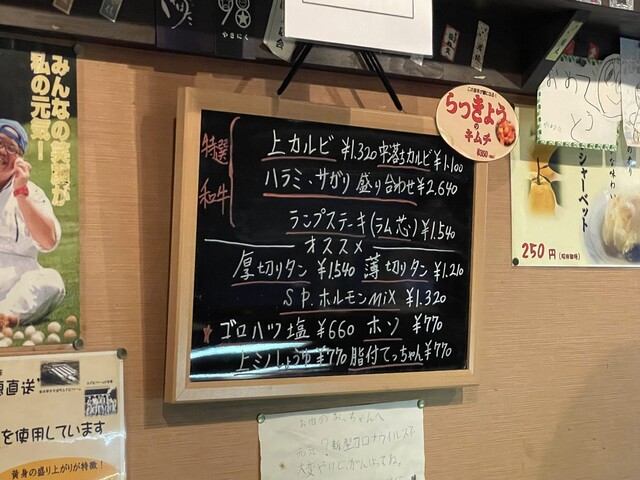 やきにく
みんなの笑顔が
私の元気!
特選
和牛
上カルビ ¥1.320 中落ちカルビ ¥1.100
ハラミ、サガリ 盛り合わせ ¥2.640
ランプステーキ(ラム芯) ¥1.540
オススメ
厚切りタン ¥1.540 薄切りタン ¥1.210
S P.ホルモンMiX ¥1.320
ゴロハツ塩 ¥660 ホソ ¥770
上ミノしょうゆ ¥770 脂付てっちゃん ¥770
らっきょう
の
キムチ
¥350
シャーベット
250円
直送
を使用しています
黄身の盛り上がりが特徴!
新型コロナウイルスで
大変やけど、がんばってね。